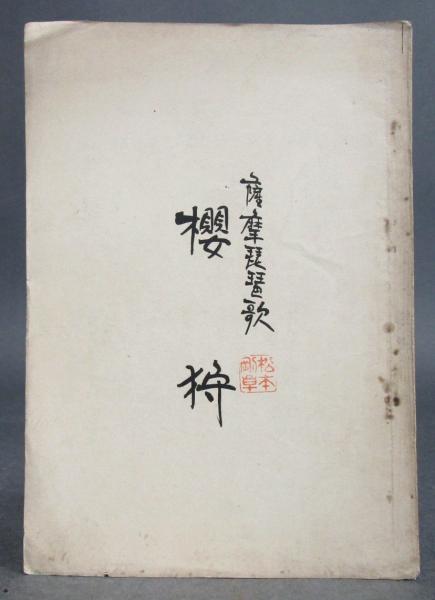 薩摩琵琶歌
櫻狩
松本
剛草